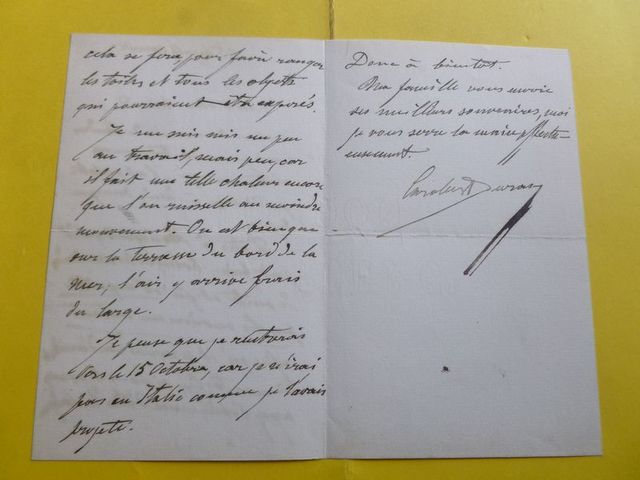 cela se fera pour faire ranger
les toiles et tous les objets
qui pourraient être exposés.
Je me suis mis un peu
au travail, mais peu, car
il fait une telle chaleur encore
que l'on ruisselle au moindre
mouvement. On est bien que
sur la terrasse du bord de la
mer, l'air y arrive frais
du large.
Je pense que je rentrerais
vers le 15 Octobre, car je n'irai
pas en Italie comme je l'avais
projeté.
Donc à bientot.
Ma famille vous envoie
ses meilleurs souvenirs, moi
je vous serre la main affectu-
eusement.
Carolus Duran